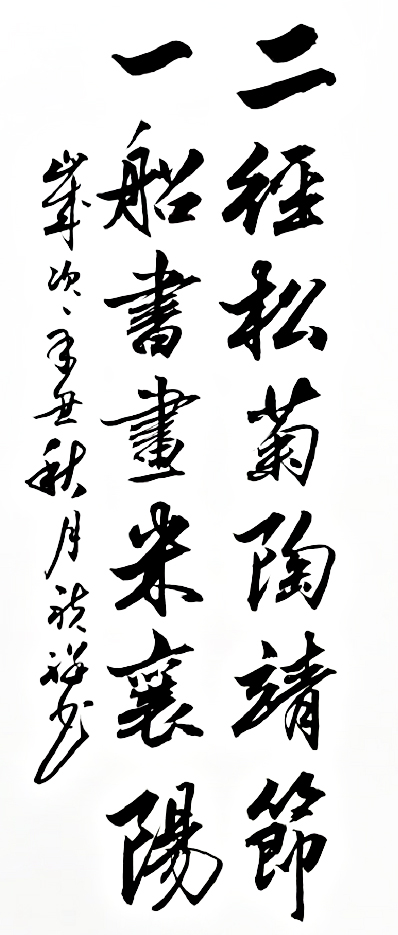 二徑松菊陶靖節
一船書畫米襄陽
歲次辛丑秋月禎祥书